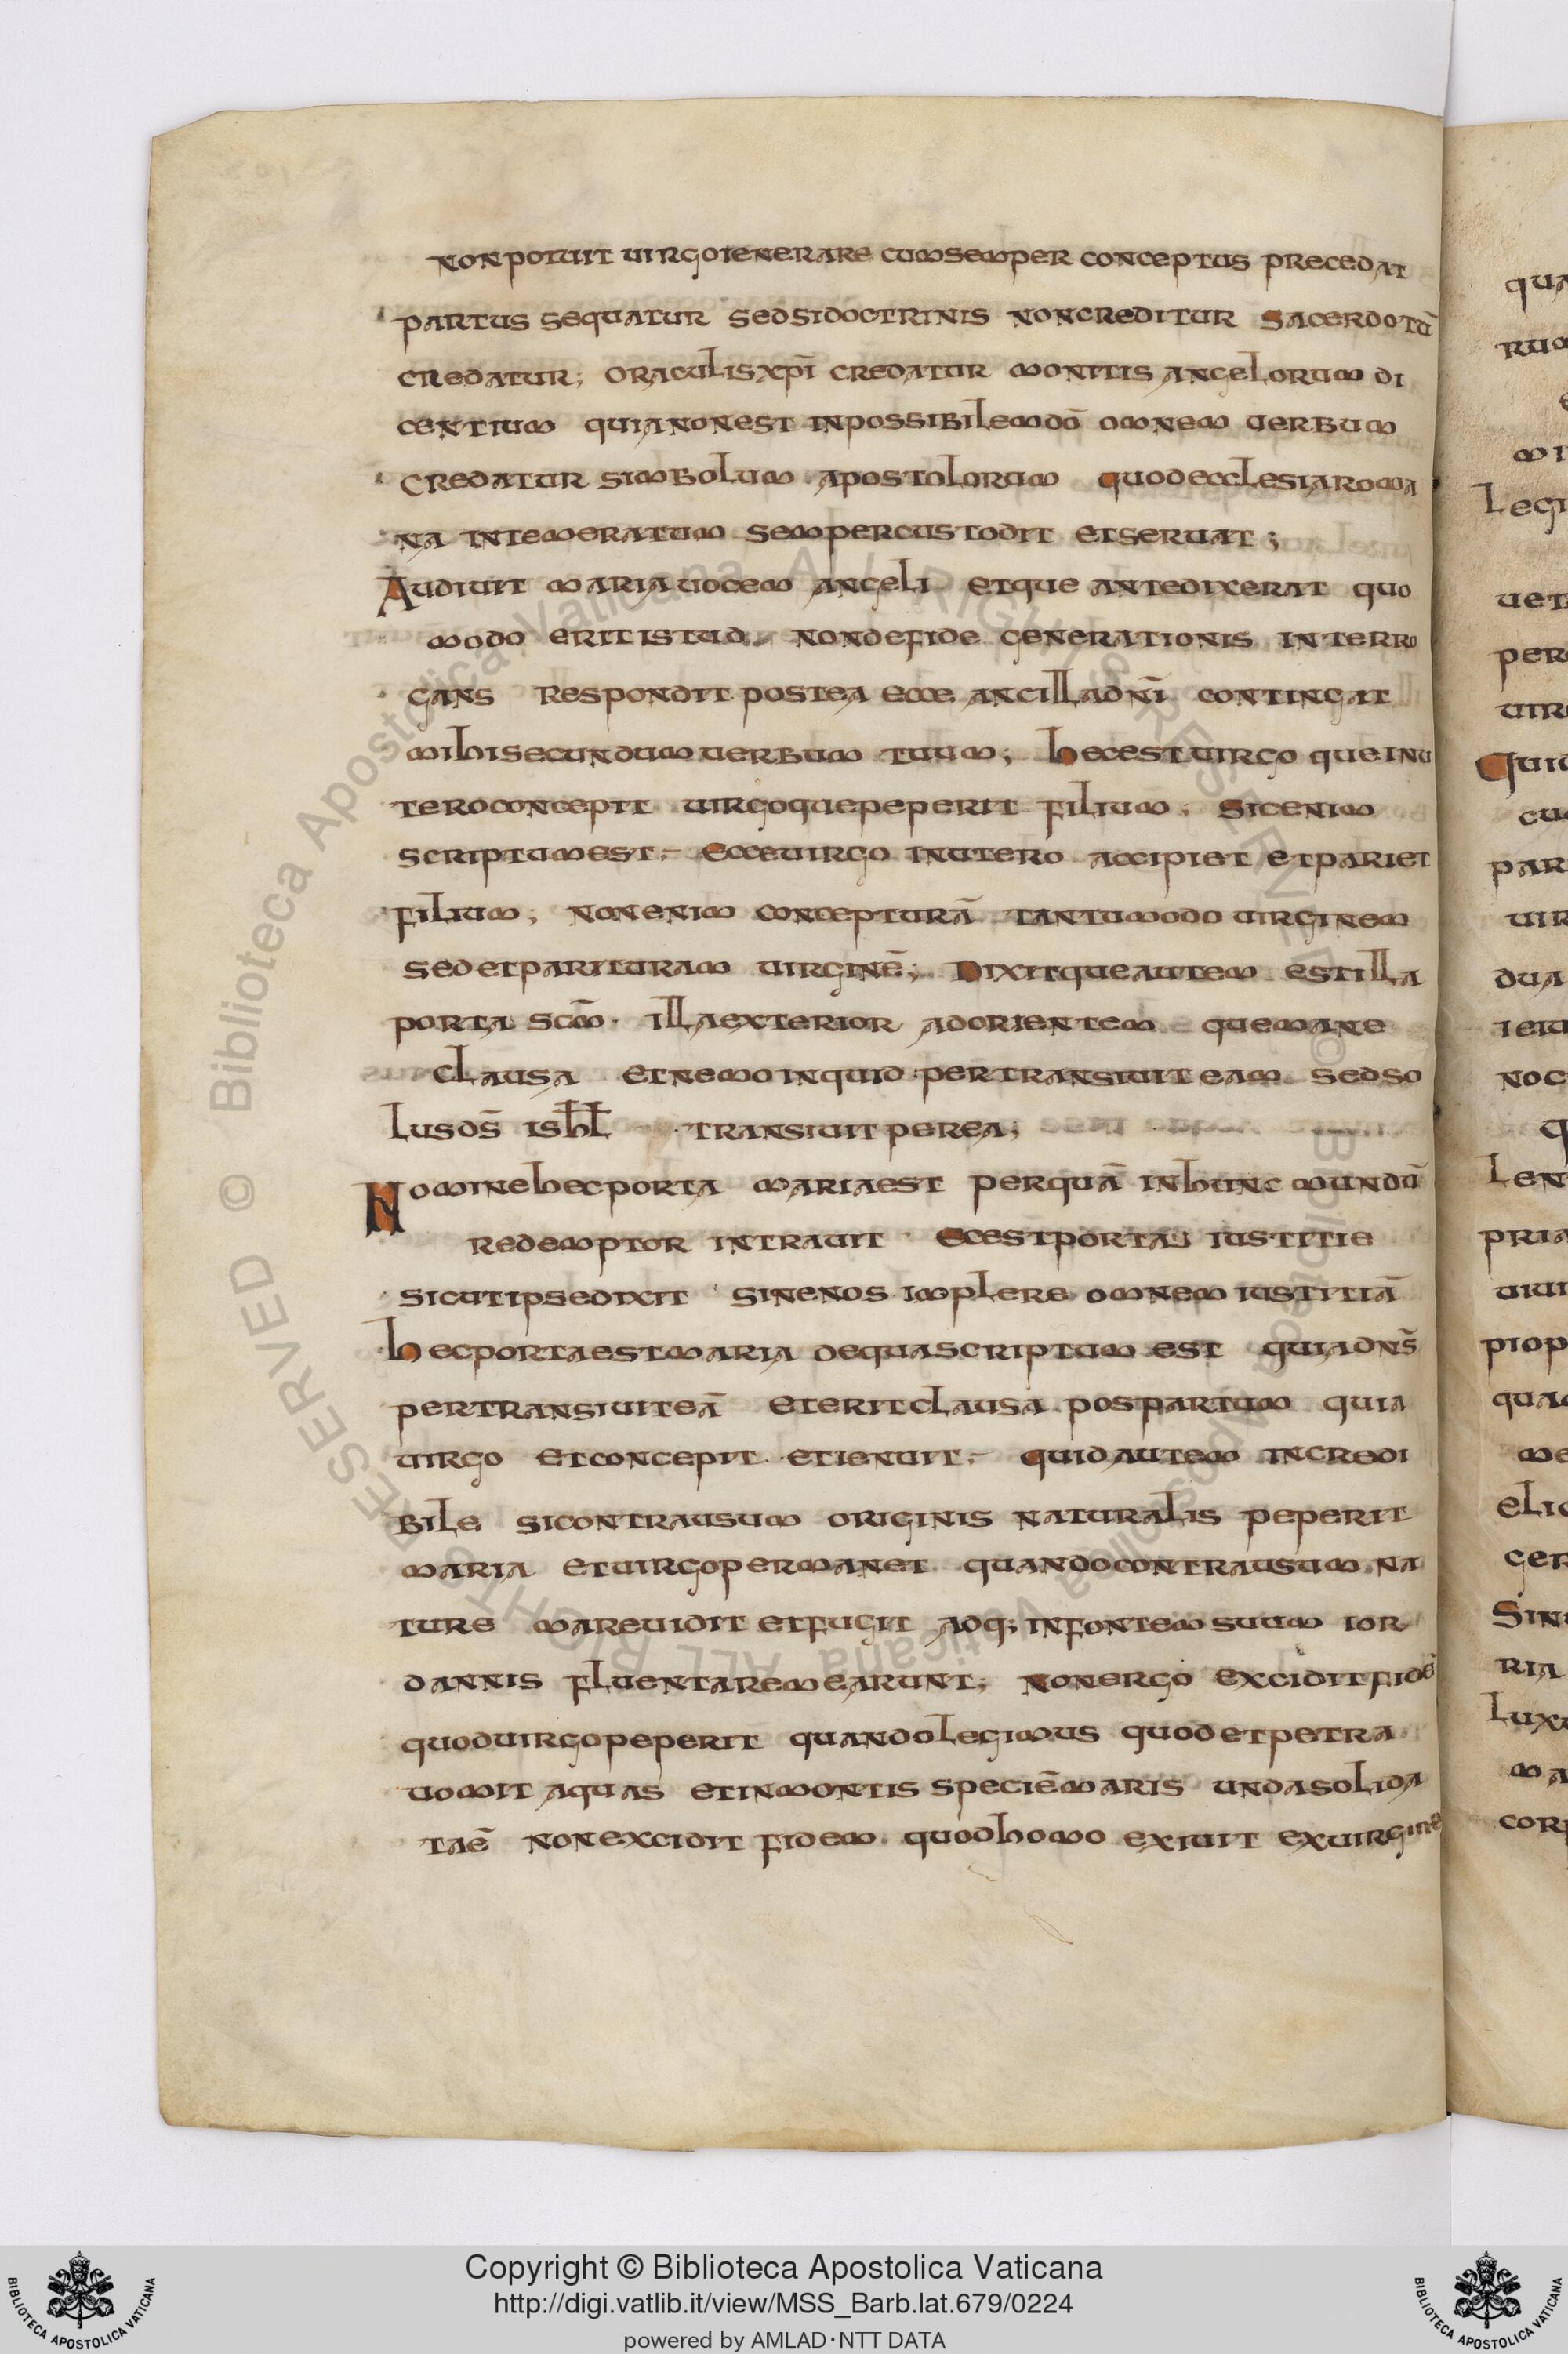 non potuit uirgo ienerare cum semper conceptus precedat
partus sequatur sed si doctrinis non creditur sacerdotū
credatur; oraculis xpī credatur monitis angelorum di
centium quia non est inpossibilem dō omnem uerbum
credatur simbolum apostolorum quod ecclesia roma
na intemeratum semper custodit et seruat;
Audiuit maria uocem angeli et que ante dixerat quo
modo erit istud, non de fide generationis interro
gans respondit postea ecce ancilla dnī contingat
mihi secundum uerbum tuum; hec est uirgo que in u
tero concepit uirgo que peperit filium. sic enim
scriptum est. ecce uirgo in utero accipiet et pariet
filium; non enim concepturā tantummodo uirginem
sed et parituram uirginē; Dixit que autem est illa
porta scm̄. illa exterior ad orientem que mane
clausa et nemo inquid pertransiuit eam sed so
lus ds̄ isħƚ transiuit per ea;
Nomine hec porta maria est per quā in hunc mundū
redemptor intrauit ec est porta iustitie
sicut ipse dixit sine nos implere omnem iustitiā
hec porta est maria de qua scriptum est quia dns̄
pertransiuit eā et erit clausa pos partum quia
uirgo et concepit et ienuit. quid autem incredi
bile si contra usum originis naturalis peperit
maria et uirgo permanet quando contra usum na
ture mare uidit et fugit adq; in fontem suum ior
dannis fluenta remearunt; non ergo excidit fidē
quod uirgo peperit quando legimus quod et petra
uomit aquas et in montis speciē maris unda solida
ta ē non excidit fidem quod homo exiuit ex uirgine
qua
rum
mi
legi
uet
per
uir
Quid
cu
par
uir
dua
ieiu
noc
q
len
pria
uiui
piop
qua
me
elig
ger
Sine
ria
luxu
ma
corp
© Biblioteca Apostolica Vaticana ALL RIGHTS RESERVED
© Biblioteca Apostolica Vaticana ALL RIGHTS RESERVED
Copyright © Biblioteca Apostolica Vaticana
http://digi.vatlib.it/view/MSS_Barb.lat.679/0224
powered by AMLAD·NTT DATA
BIBLIOTECA APOSTOLICA VATICANA
BIBLIOTECA APOSTOLICA VATICANA